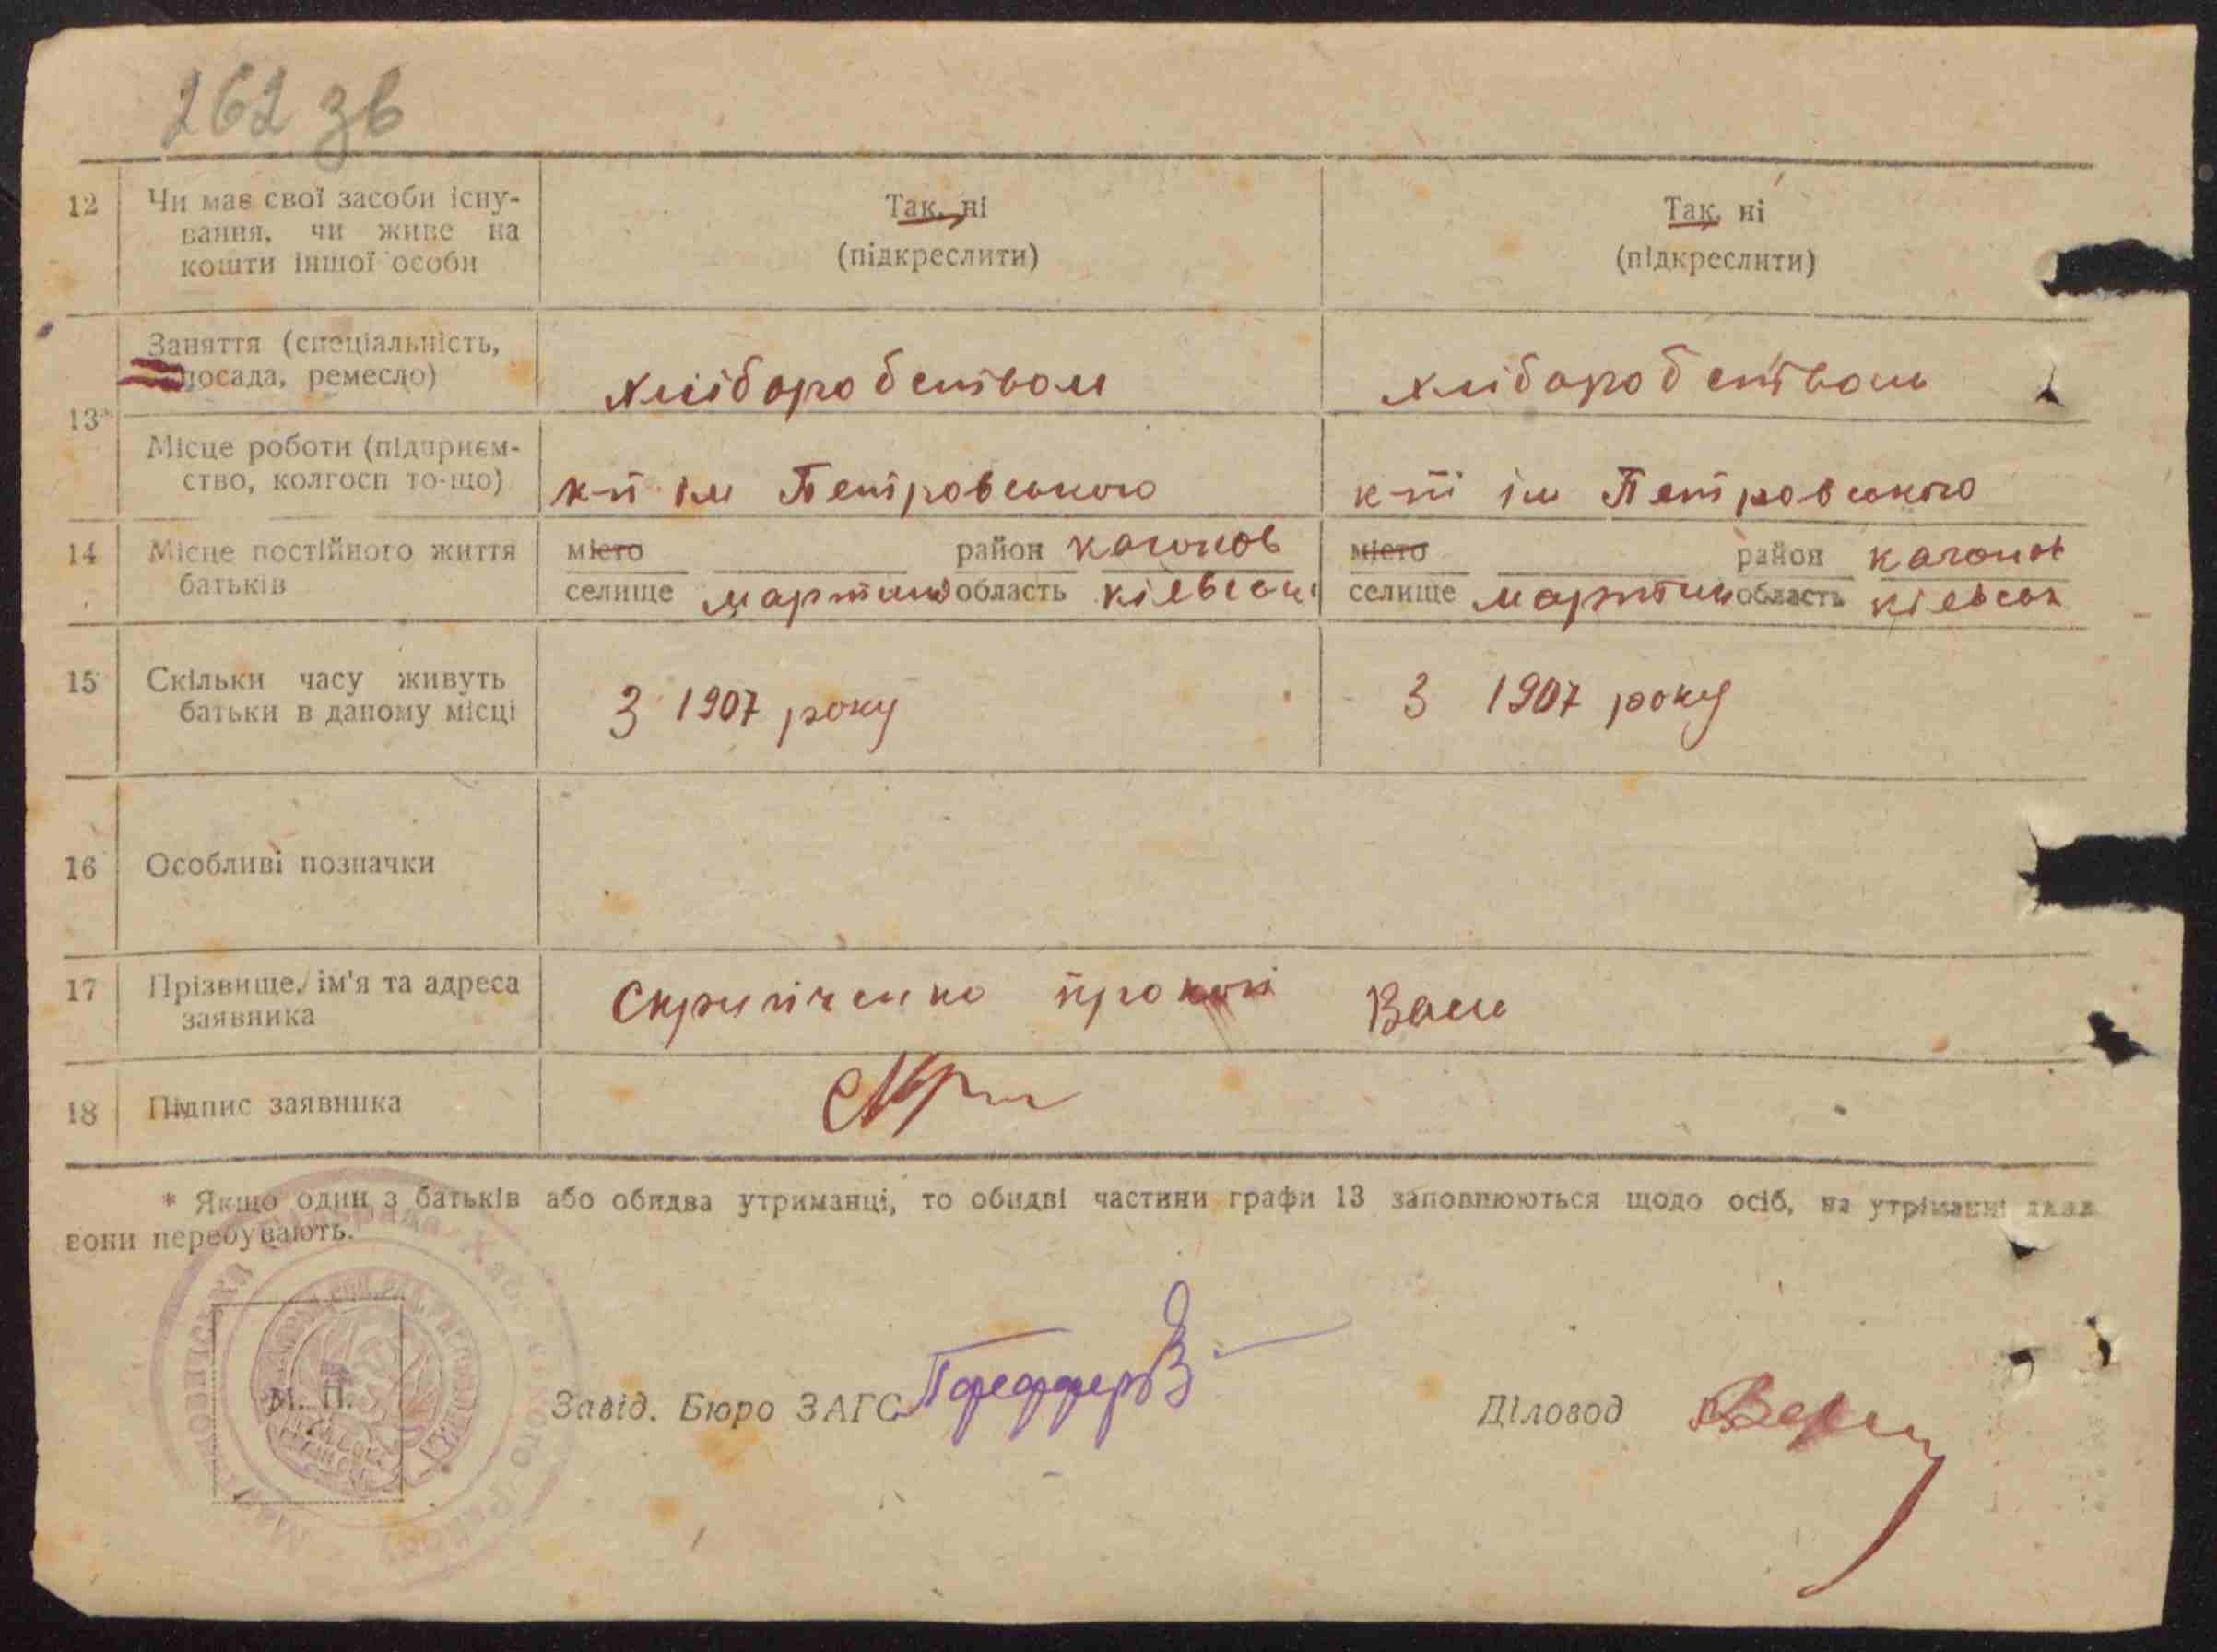 262 зв
12 Чи має свої засоби існу- Так, ні Так, ні
вання, чи живе на (підкреслити) (підкреслити)
кошти іншої особи
13* Заняття (спеціальність, хліборобством хліборобством
посада, ремесло)
Місце роботи (підприєм- к-п ім Петровського к-п ім Петровського
ство, колгосп то-що)
14 Місце постійного життя місто район каганов місто район каганов
батьків селище мартин область київськ селище мартин область київськ
15 Скільки часу живуть З 1907 року З 1907 року
батьки в даному місці
16 Особливі позначки
17 Прізвище, ім'я та адреса Скрипченко прокоп Васи
заявника
18 Підпис заявника
* Якщо один з батьків або обидва утриманці, то обидві частини графи 13 заповнюються щодо осіб, на утриманні яких
вони перебувають.
М. П. Завід. Бюро ЗАГС Діловод